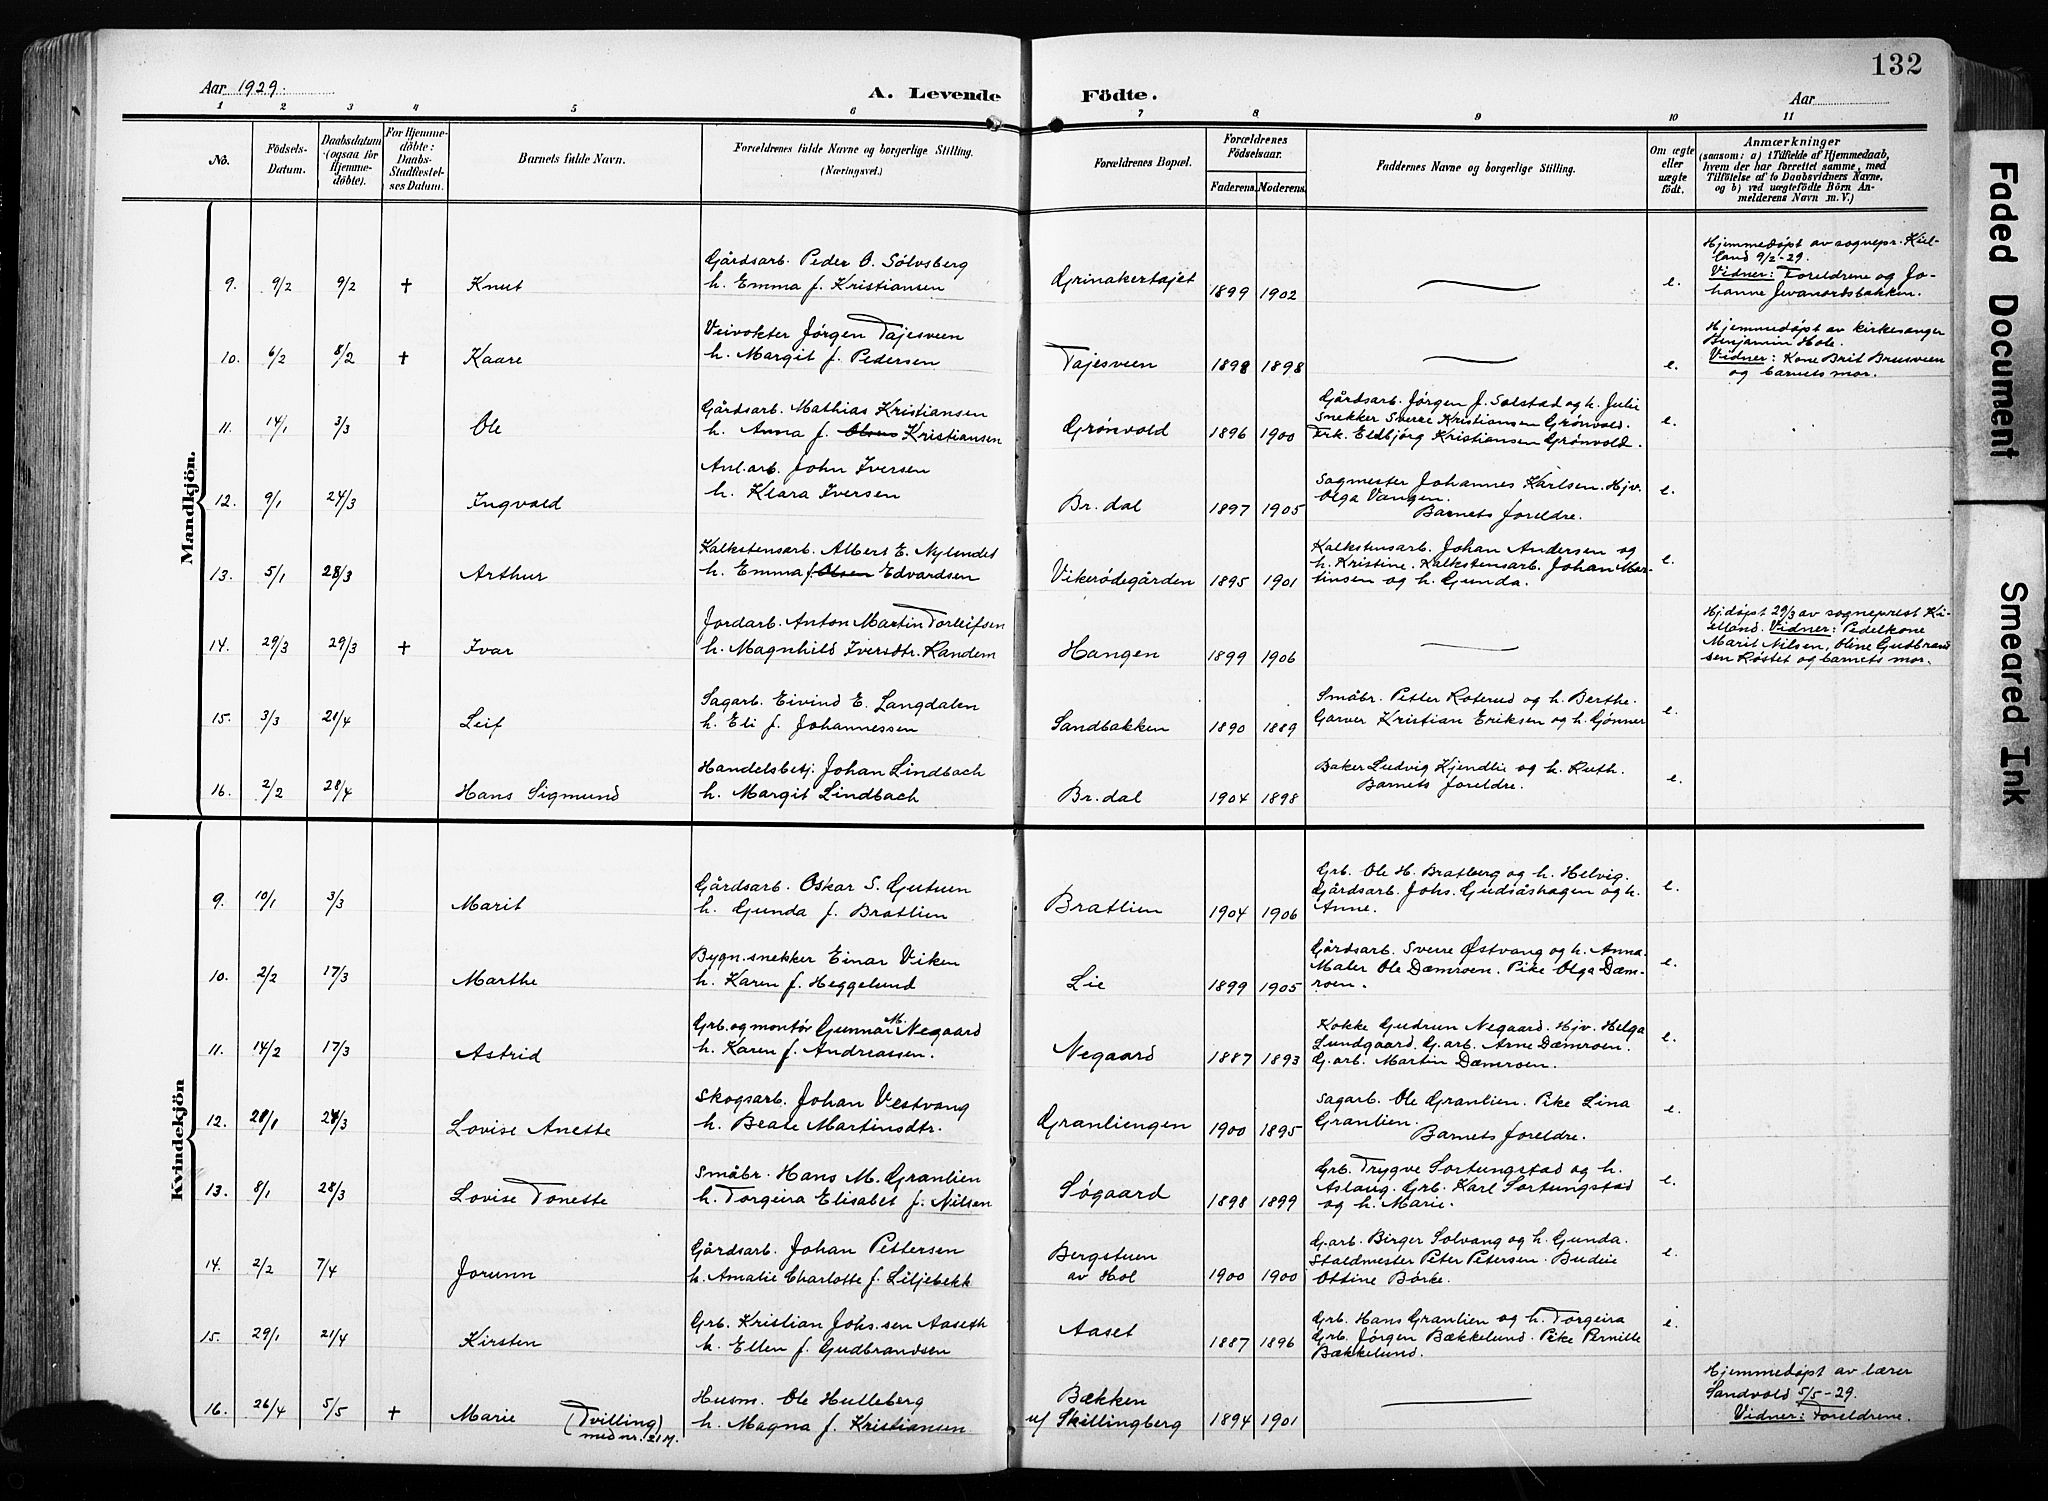 132
Aar 1929.
A. Levende Födte.
Aar
1 2 3 4 5 6 7 8 9 10 11
No.
Födsels-Datum.
Daabsdatum (ogsaa for Hjemmedöbte).
For Hjemmedöbte: Daabs-Stadfæstelses Datum.
Barnets fulde Navn.
Forældrenes fulde Navne og borgerlige Stilling.
(Næringsvei.)
Forældrenes Bopæl.
Forældrenes Födselsaar.
Faderens. Moderens.
Faddernes Navne og borgerlige Stilling.
Om ægte eller uægte födt.
Anmærkninger
(saasom: a) i Tilfælde af Hjemmedaab, hvem der har forrettet samme, med Tilföielse af to Daabsvidners Navne, og b) ved uægtefödte Börn Anmelderens Navn m. V.)
Mandkjön.
9. 9/2 9/2 † Knut
Gårdsarb. Peder O. Sølvsberg
h. Emma f. Kristiansen
Grinakertajet 1899 1902 e.
Hjemmedøpt av sognepr. Kielland 9/2-29.
Vidner: Foreldrene og Johanne Jevanordsbakken.
10. 6/2 8/2 † Kaare
Veivokter Jörgen Tajesveen
h. Margit f. Pedersen
Tajesveen 1898 1898 e.
Hjemmedøpt av kirkesanger
Benjamin Hole.
Vidner: Kone Brit Brusveen
og barnets mor.
11. 14/1 3/3 Ole
Gårdsarb. Mathias Kristiansen
h. Anna f. Olsen Kristiansen
Grønvold 1896 1900
Gårdsarb. Jörgen J. Solstad og h. Julie
Snekker Sverre Kristiansen Grønvold.
Frk. Eldbjörg Kristiansen Grønvold.
e.
12. 9/1 24/3 Ingvald
Anl.arb. John Iversen
h. Klara Iversen
Br.dal 1897 1905
Sagmester Johannes Karlsen. Hjv.
Olga Vangen.
Barnets foreldre.
e.
13. 5/1 28/3 Arthur
Kalkstensarb. Albert E. Nylendet
h. Emma f. Olsen Edvardsen
Vikerødegården 1895 1901
Kalkstensarb. Johan Andersen og
h. Kristine. Kalkstensarb. Johan Martinsen og h. Gunda.
e.
14. 29/3 29/3 † Ivar
Jordarb. Anton Martin Torleifsen
h. Magnhild Iversdtr. Randem
Hangen 1899 1906
Hjdøpt 29/3 av sogneprest Kielland. Vidner: Pedelkone
Marit Nilsen, Oline Gudbrandsen Røstet og barnets mor.
15. 3/3 21/4 Leif
Sagarb. Eivind E. Langdalen
h. Eli f. Johannessen
Sandbakken 1890 1889
Småbr. Petter Roterud og h. Berthe.
Garver Kristian Eriksen og h. Gønner
e.
16. 2/2 28/4 Hans Sigmund
Handelsbetj. Johan Lindbach
h. Margit Lindbach
Br.dal 1904 1898
Baker Ludvig Kjendlie og h. Ruth.
Barnets foreldre.
e.
Kvindekjön
9. 10/1 3/3 Marit
Gårdsarb. Oskar S. Gutuen
h. Gunda f. Bratlien
Bratlien 1904 1906
Grb. Ole H. Bratberg og h. Helvig.
Gårdsarb. Johs. Gudsåshagen og h.
Anne.
e.
10. 2/2 17/3 Marthe
Bygn.snekker Einar Viken
h. Karen f. Heggelund
Lie 1899 1905
Gårdsarb. Sverre Østvang og h. Anna.
Maler Ole Dæmroen. Pike Olga Dæmroen.
e.
11. 14/2 17/3 Astrid
Grb. og montør Gunnar M. Negaard
h. Karen f. Andreassen.
Negaard 1887 1893
Kokke Gudrun Negaard. Hjv. Helga
Lundgaard. G.arb. Arne Dæmroen.
G.arb. Martin Dæmroen.
e.
12. 28/3 Lovise Anette
Skogsarb. Johan Vestvang
h. Beate Martinsdtr.
Granliengen 1900 1895
Sagarb. Ole Granlien. Pike Lina
Granlien.
Barnets foreldre.
e.
13. 8/1 28/3 Lovise Tonette
Småbr. Hans M. Granlien
h. Torgeira Elisabet f. Nilsen
Søgaard 1898 1899
Grb. Trygve Sortungstad og h.
Aslaug. Grb. Karl Sortungstad
og h. Marie.
e.
14. 2/2 7/4 Jorunn
Gårdsarb. Johan Pettersen
h. Amalie Charlotte f. Liljebekk
Bergstuen
av Hol 1900 1900
G.arb. Birger Solvang og h. Gunda.
Staldmester Peter Petersen. Budeie
Ottine Börke.
e.
15. 29/1 21/4 Kirsten
Grb. Kristian Johs.sen Aaseth
h. Ellen f. Gudbrandsen
Aaset 1887 1896
Grb. Hans Granlien og h. Torgeira
Grb. Jörgen Bækkelund. Pike Pernille
Bækkelund.
e.
16. 26/4 5/5 † Marie (Tvilling)
med nr. 21 M.
Husm. Ole Hulleberg
h. Magna f. Kristiansen
Bækken
u/ Skillingberg 1894 1901
Hjemmedøpt av lærer
Sandvold 5/5-29.
Vidner: Foreldrene.
Faded Document
Smeared Ink